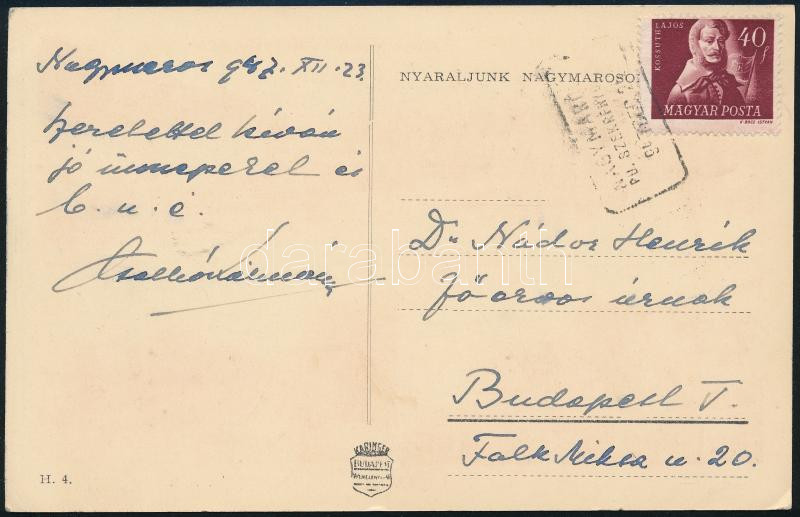 Nagymaros 947. XII. 23.
szeretettel kíván
jó ünnepeket és
b. u. é.
H. 4.
KARINGER
BUDAPEST
NYARALJUNK NAGYMAROSON
KOSSUTH LAJOS
40 f
MAGYAR POSTA
NAGYMAROS
PU. SZEKRÉNY
GYŰJTÉS
Dr Nádor Henrik
főorvos úrnak
Budapest V.
Falk Miksa u. 20.
darabanth